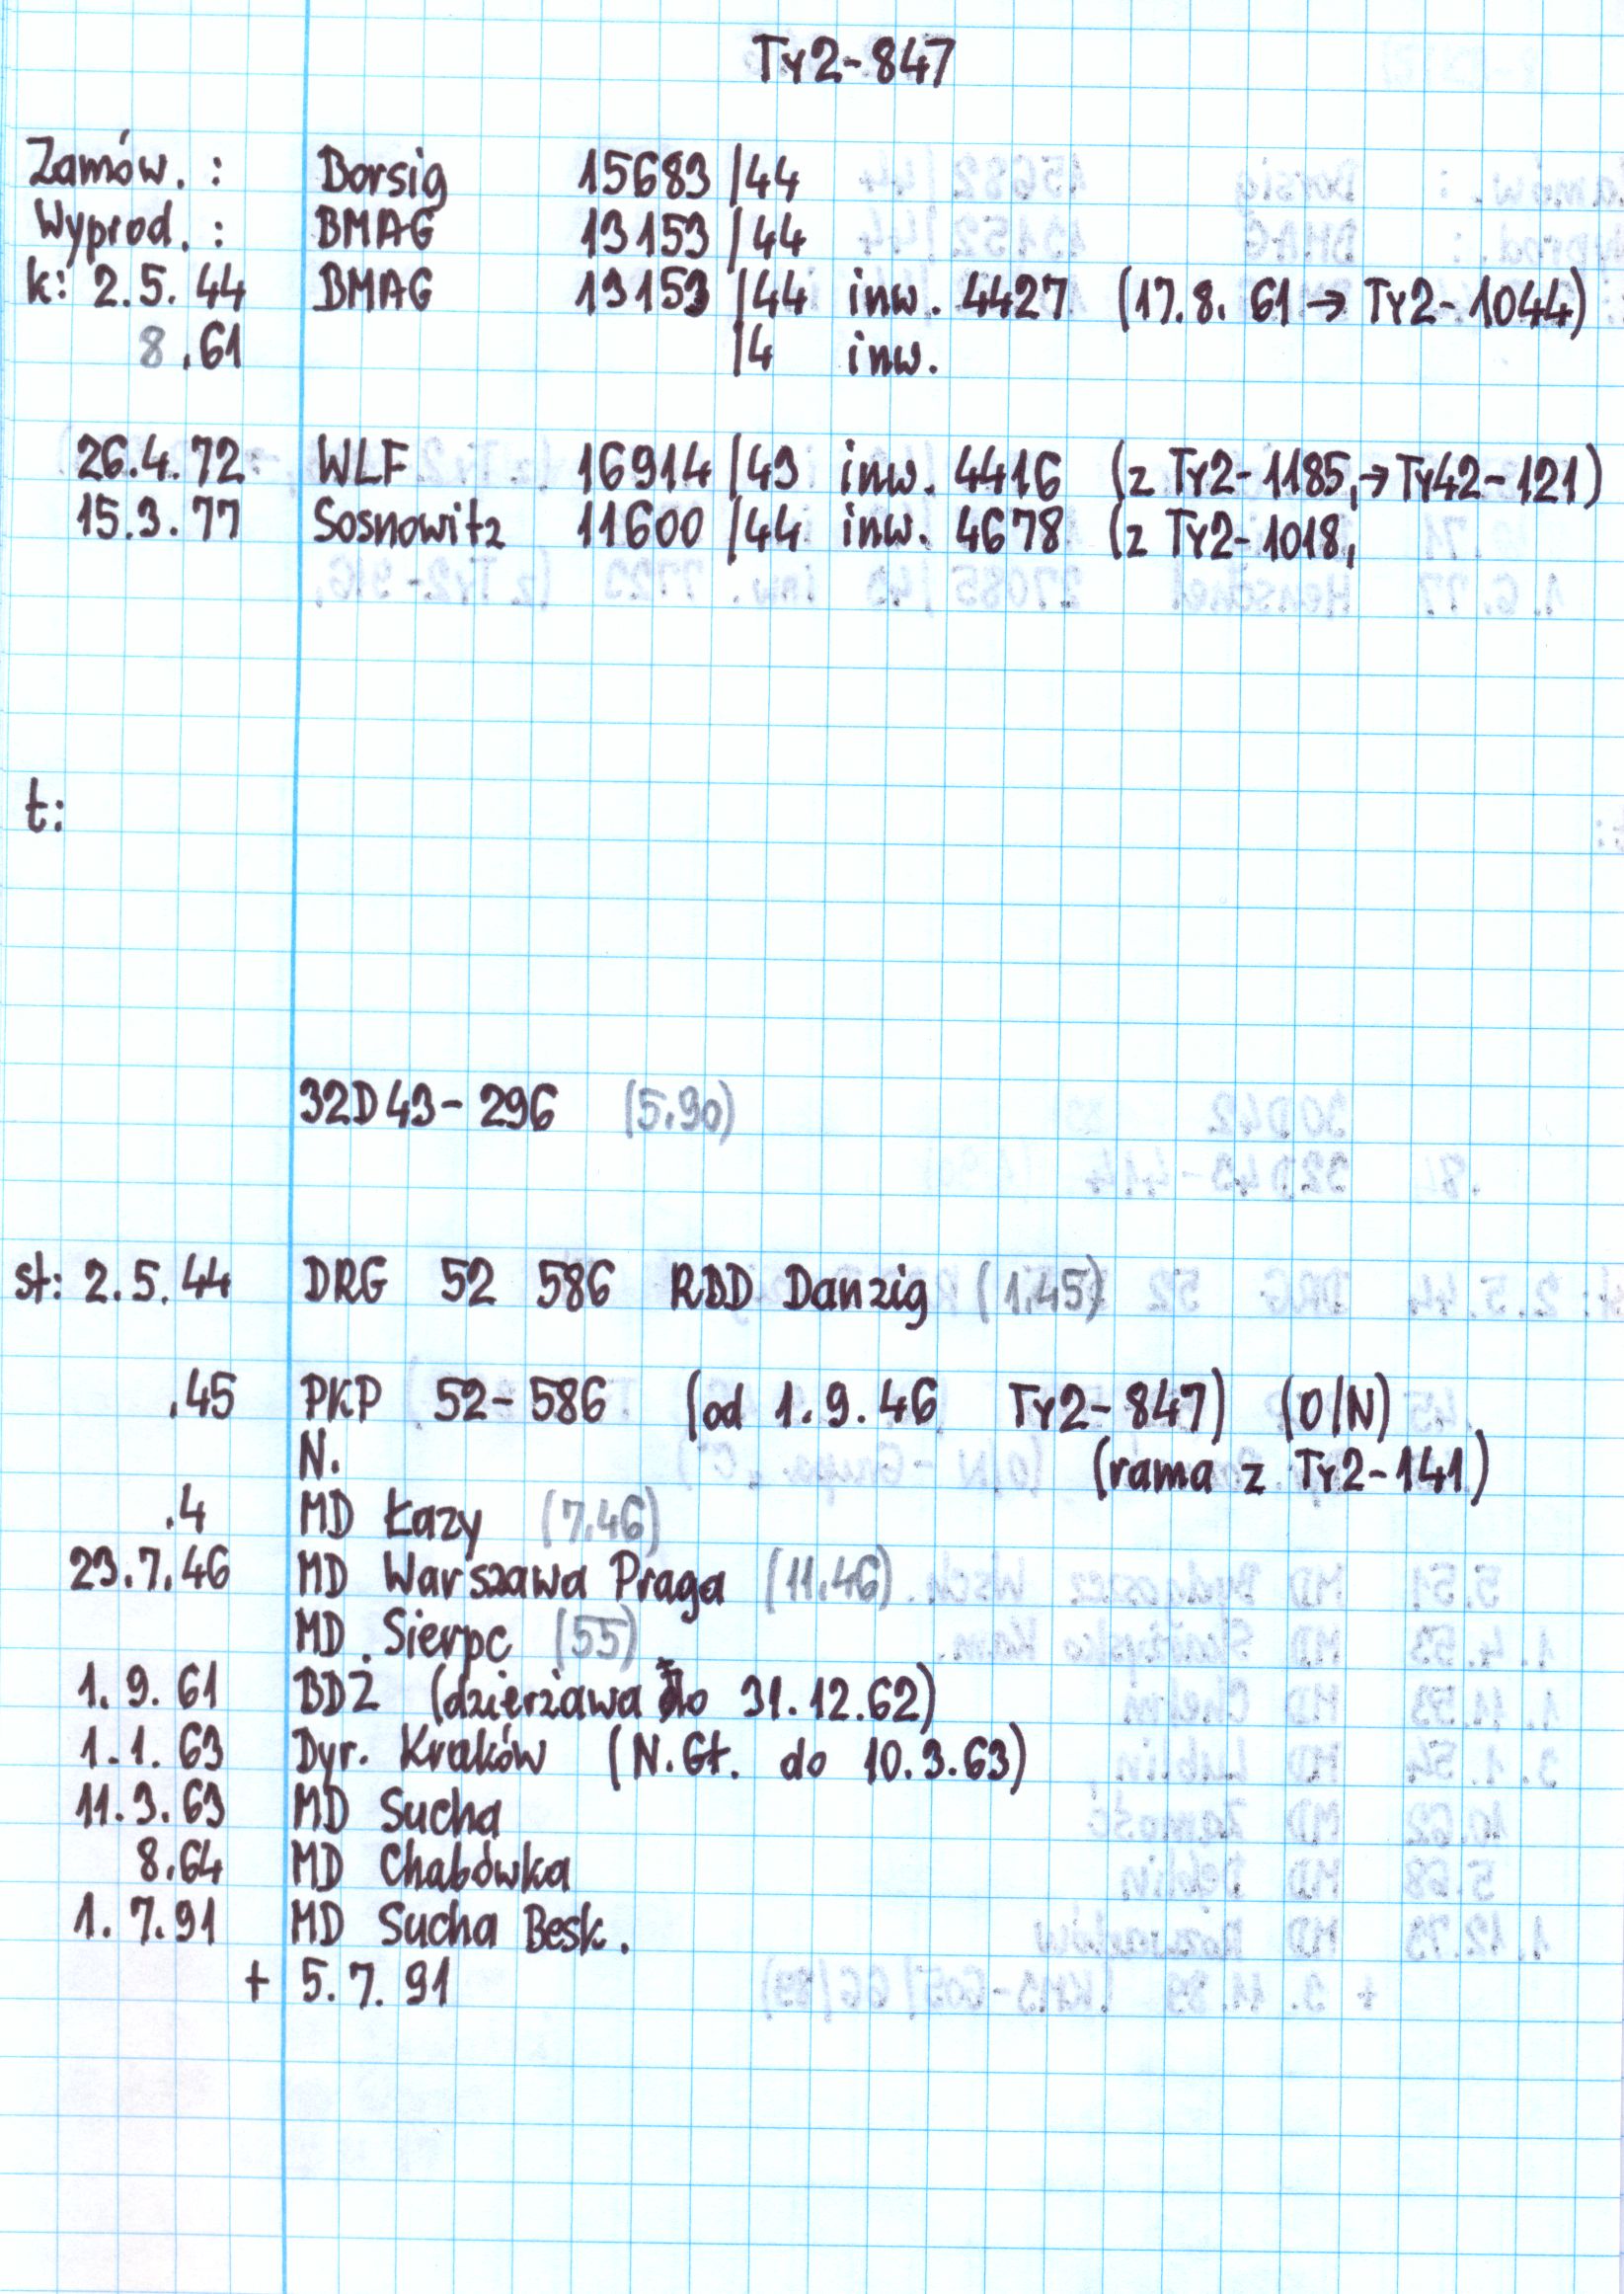 Ty2-847
Zamów. : Borsig 15683 /44
Wyprod. : BMAG 13153 /44
k: 2.5.44 BMAG 13153 /44 inw. 4427 (17.8.61 → Ty2-1044)
8.61 /4 inw.
26.4.72 WLF 16914 /43 inw. 4416 (z Ty2-1185, → Ty42-121)
15.3.77 Sosnowitz 11600 /44 inw. 4678 (z Ty2-1018,
t:
32D43-296 (5.90)
st: 2.5.44 DRG 52 586 RBD Danzig (1.45)
.45 PKP 52-586 (od 1.9.46 Ty2-847) (O/N)
N. (rama z Ty2-141)
.4 MD Łazy (7.46)
23.7.46 MD Warszawa Praga (11.46)
MD Sierpc (55)
1.9.61 BDŻ (dzierżawa do 31.12.62)
1.1.63 Dyr. Kraków (N.Gł. do 10.3.63)
11.3.63 MD Sucha
8.64 MD Chabówka
1.7.91 MD Sucha Besk.
+ 5.7.91